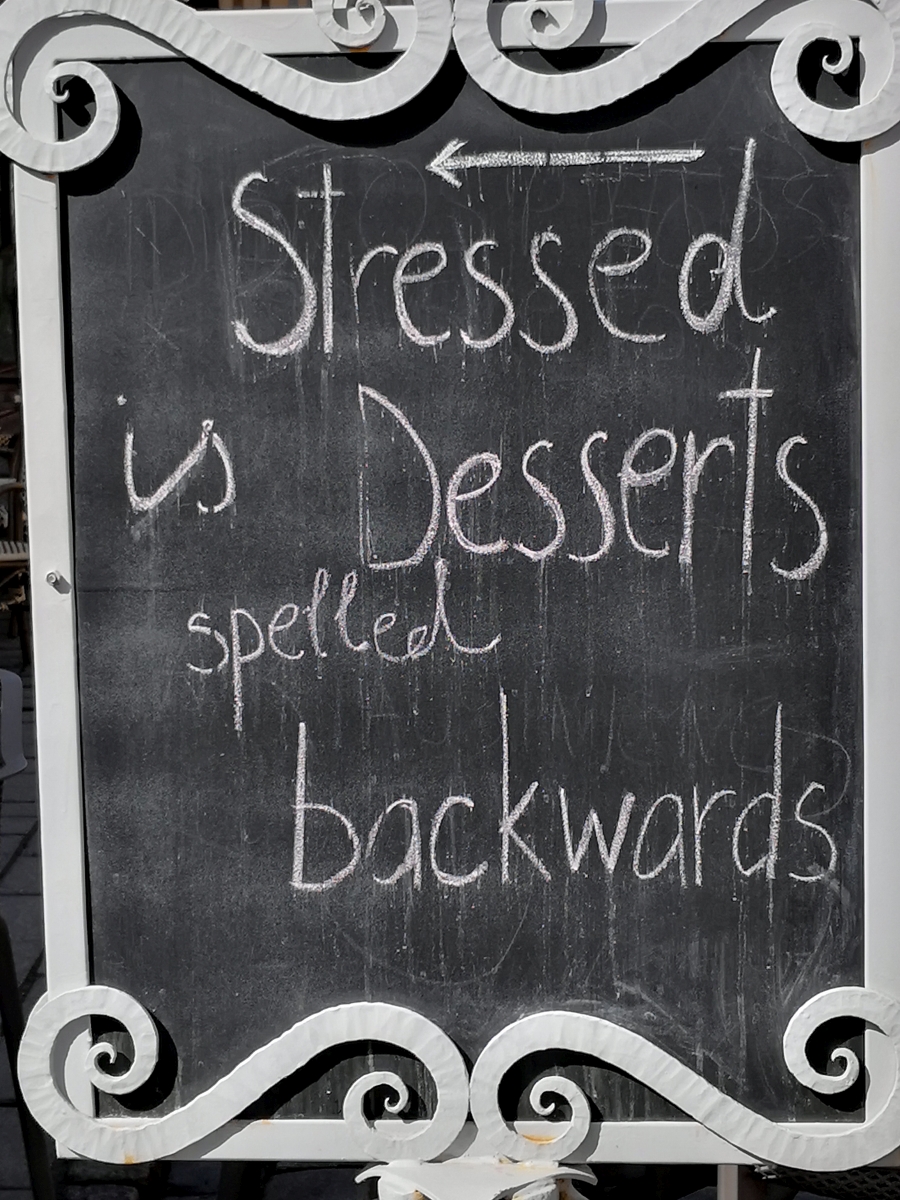 Stressed
is Desserts
spelled
backwards